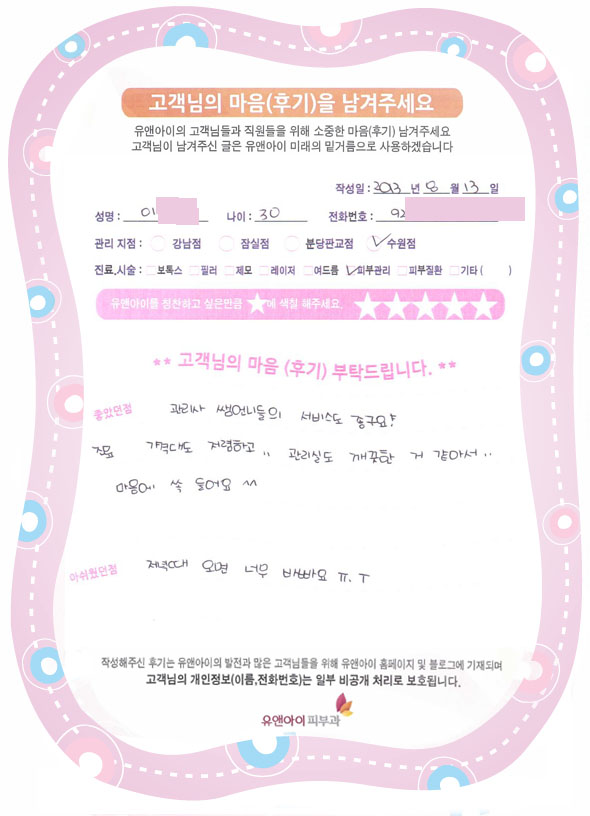 고객님의 마음(후기)을 남겨주세요
유앤아이의 고객님들과 직원들을 위해 소중한 마음(후기) 남겨주세요
고객님이 남겨주신 글은 유앤아이 미래의 밑거름으로 사용하겠습니다
작성일 : 2013 년 8 월 13 일
성명 : 이 나이 : 30 전화번호 : 92
관리 지점 : 강남점 잠실점 분당판교점 수원점
진료,시술 : 보톡스 필러 제모 레이저 여드름 피부관리 피부질환 기타 ( )
유앤아이를 칭찬하고 싶은만큼 ★에 색칠 해주세요. ★★★★★
** 고객님의 마음 (후기) 부탁드립니다. **
좋았던점 관리사 쌤언니들의 서비스도 좋구요!
가격대도 저렴하고,, 관리실도 깨끗한 거 같아서..
마음에 쏙 들어요 ^^
아쉬웠던점 저녁때 오면 너무 바빠요 ㅠ.ㅜ
작성해주신 후기는 유앤아이의 발전과 많은 고객님들을 위해 유앤아이 홈페이지 및 블로그에 기재되며
고객님의 개인정보(이름,전화번호)는 일부 비공개 처리로 보호됩니다.
유앤아이피부과